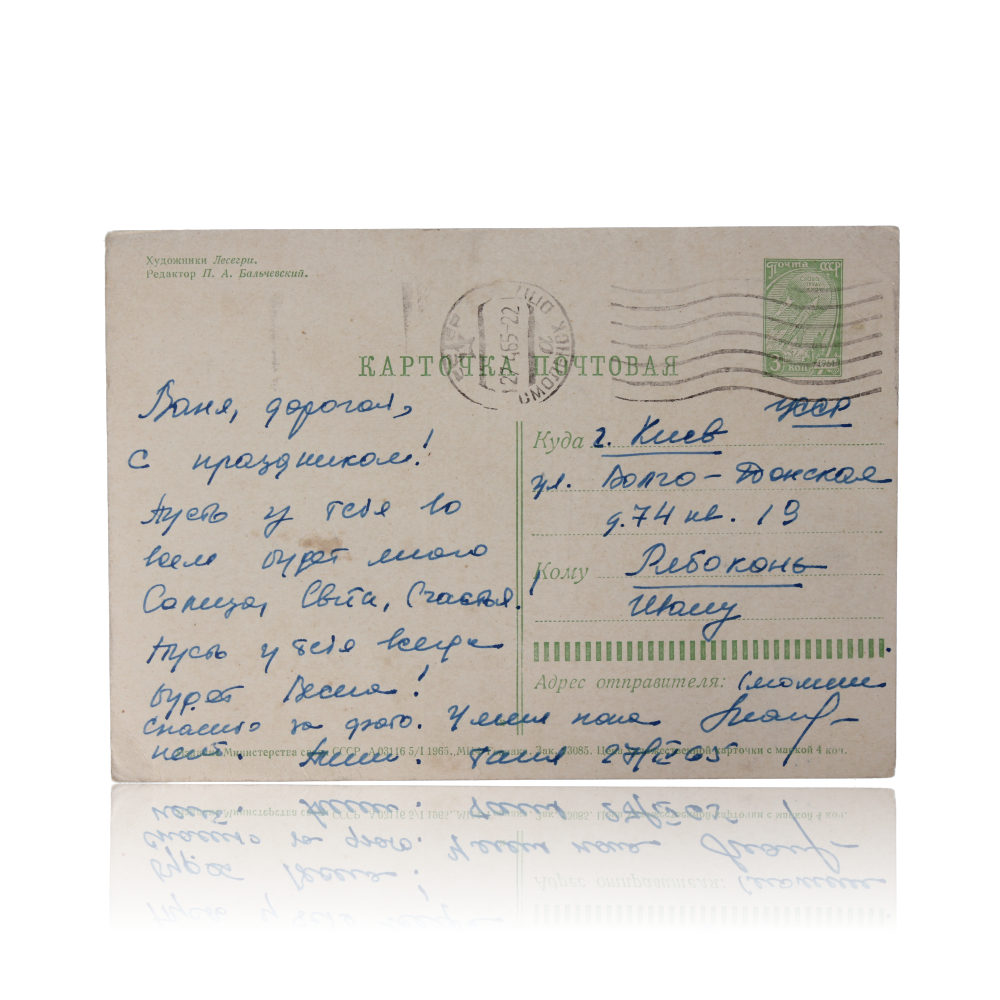 Художники Лесегри.
Редактор П. А. Бальчевский.
ПОЧТА СССР
3 коп 1961
27 4 65-22
СМОЛЕНСК
КАРТОЧКА ПОЧТОВАЯ
дорогая,
с праздником!
Пусть у тебя во
всем будет много
Солнца, Света, Счастья.
Пусть у тебя всегда
будет Весна!
Спасибо за фото. У меня пока
нет. Таня 27/IV 65
Куда г. Киев УССР
ул. Волго-Донская
д. 74 кв. 19
Кому Рябоконь
Адрес отправителя:
Министерства связи СССР. А03116 5/I 1965. Зак. 3085. Цена художественной карточки с маркой 4 коп.